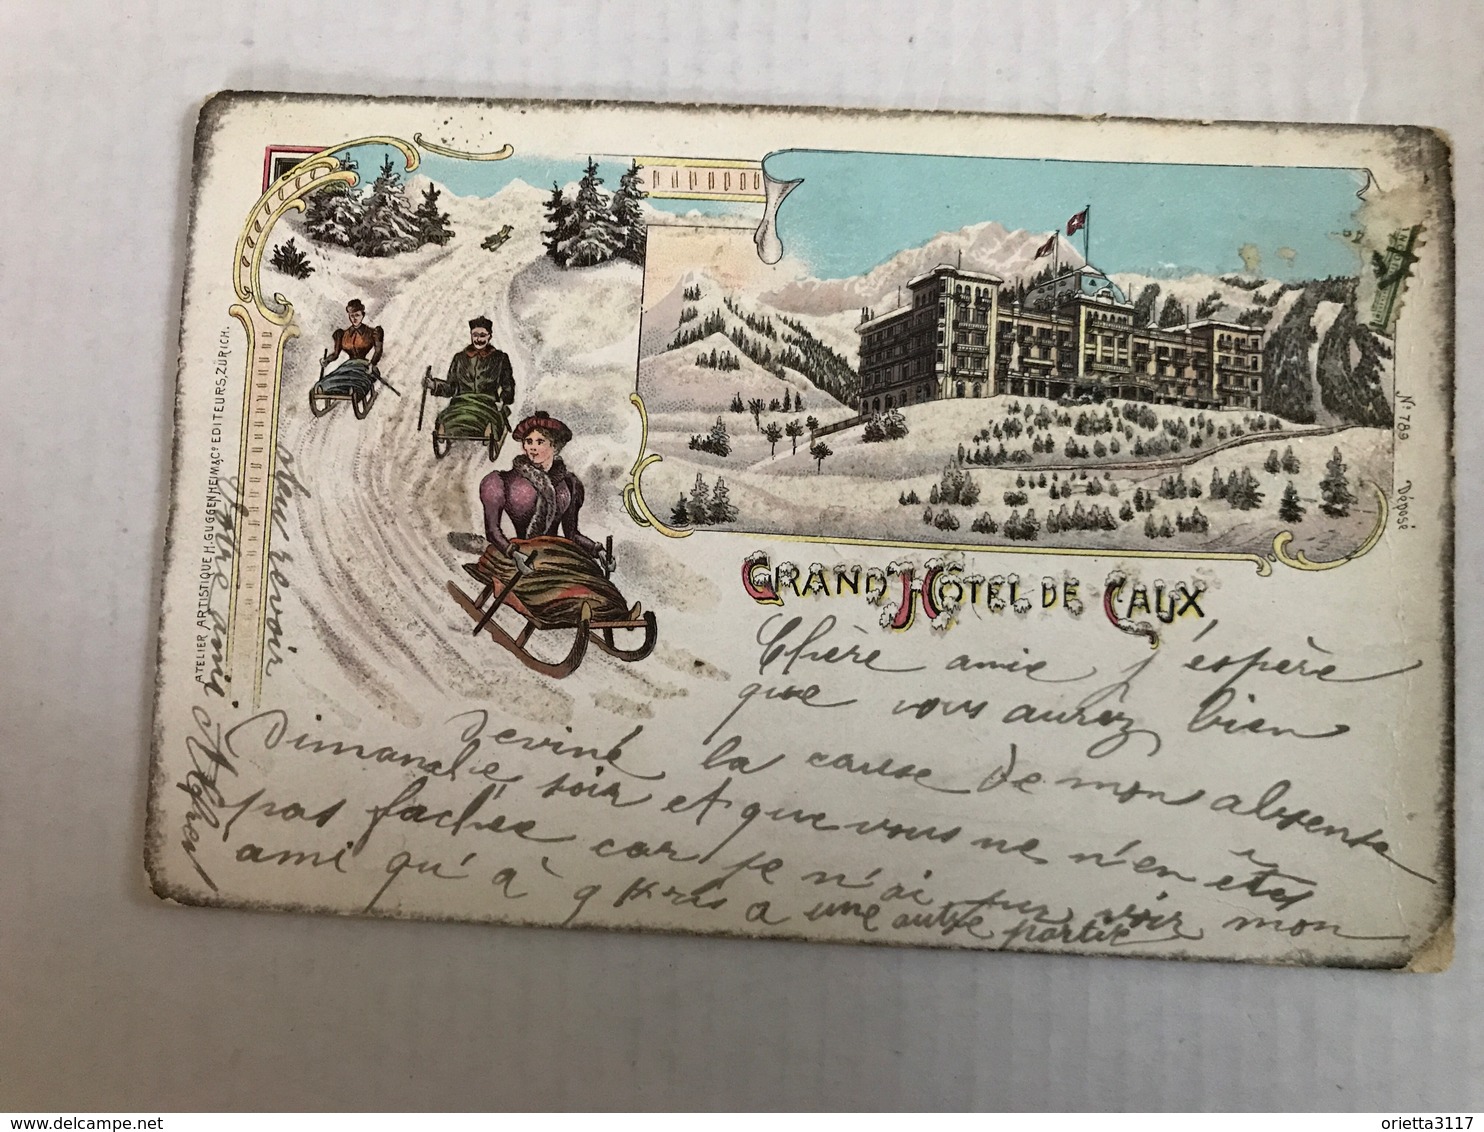 GRAND HÔTEL DE CAUX
Chère amie j'espère
que vous aurez bien
deviné la cause de mon absense
Dimanche soir et que vous ne n'en êtes
pas fachée car je n'ai pu voir mon
ami qu'à 9 h
a une autre partie
au revoir
votre ami
ATELIER ARTISTIQUE H. GUGGENHEIM & Cº EDITEURS, ZÜRICH.
Nº 789
Déposé
delcampe.net
orietta3117